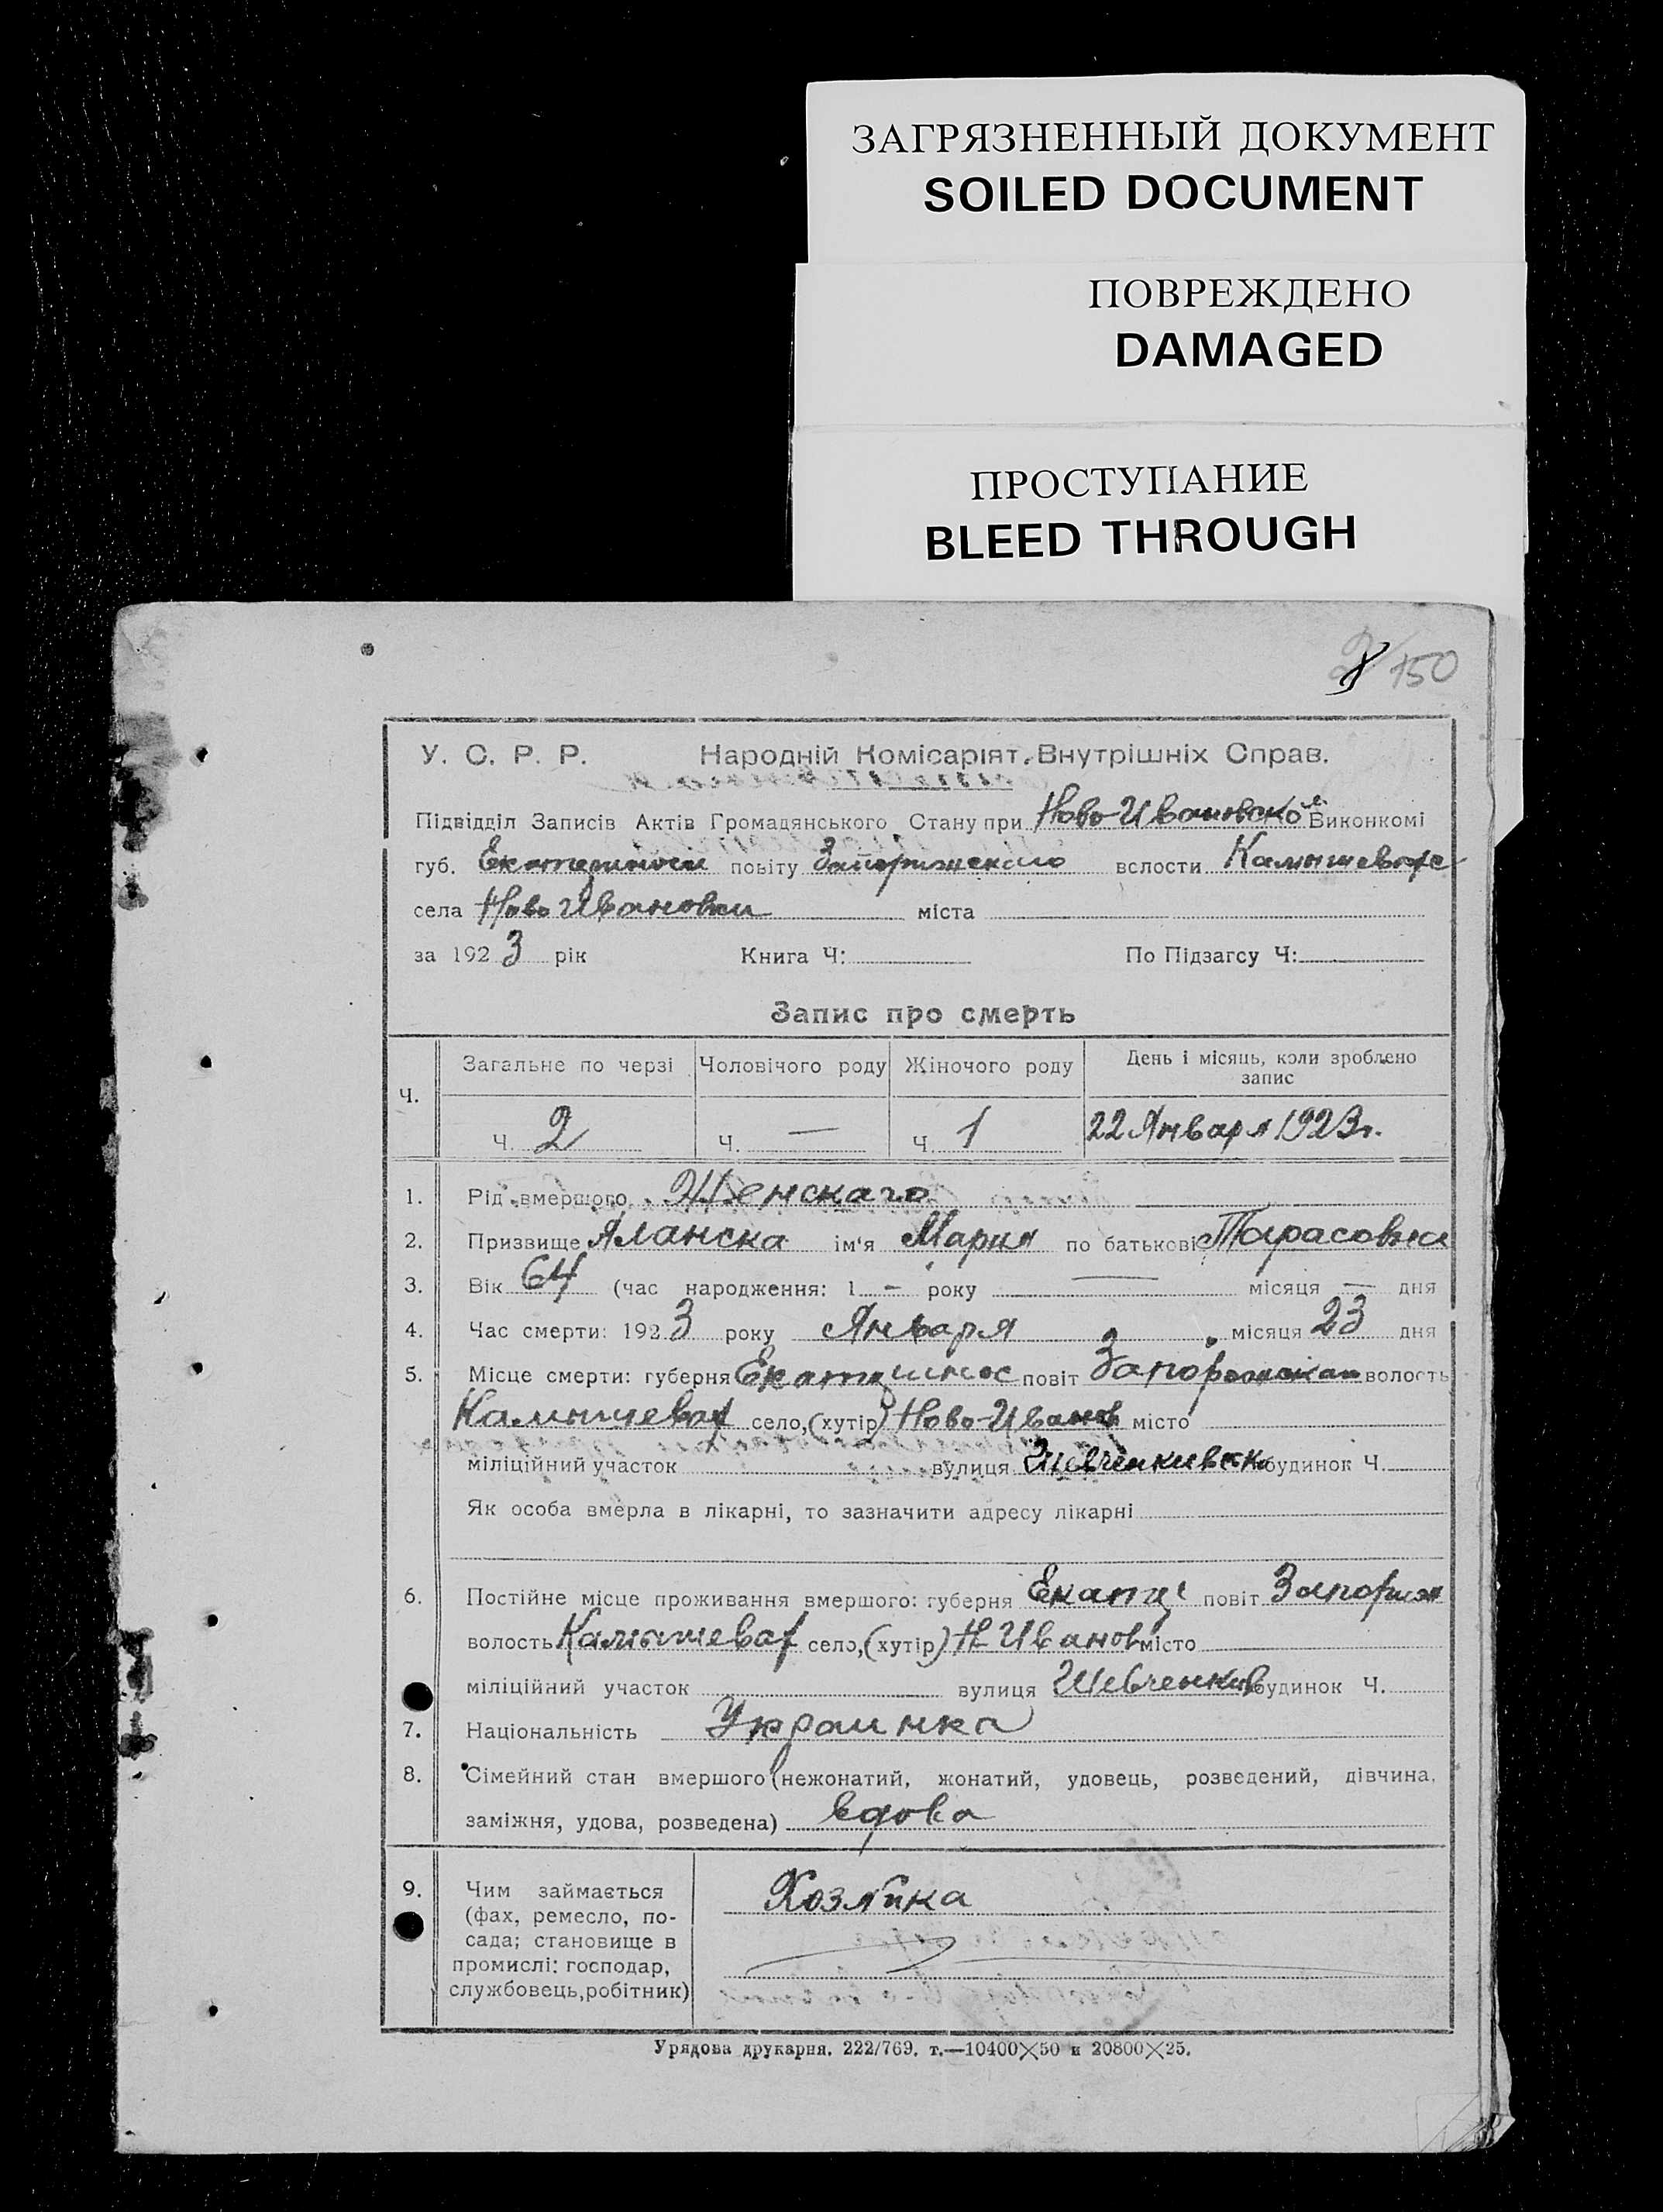 ЗАГРЯЗНЕННЫЙ ДОКУМЕНТ
SOILED DOCUMENT
ПОВРЕЖДЕНО
DAMAGED
ПРОСТУПАНИЕ
BLEED THROUGH
150
У. С. Р. Р. Народній Комісаріят Внутрішніх Справ.
Підвідділ Записів Актів Громадянського Стану при Ново-Ивановской Виконкомі
губ. Екатеринос повіту Запорожскаго волости Камышеваре
села Ново Ивановки міста
за 1923 рік Книга Ч: По Підзагсу Ч:
Запис про смерть
Ч. Загальне по черзі Чоловічого роду Жіночого роду День і місяць, коли зроблено запис
Ч. 2 Ч. — Ч. 1 22 Января 1923 г.
1. Рід вмершого Женскаго
2. Призвище Яланска ім'я Мария по батькові Тарасовна
3. Вік 64 (час народження: 1 – року — місяця — дня
4. Час смерти: 1923 року Января місяця 23 дня
5. Місце смерти: губерня Екатеринос повіт волость
Камышеват село, (хутір) Ново-Иванов місто
міліційний участок вулиця Шевченкивска будинок Ч.
Як особа вмерла в лікарні, то зазначити адресу лікарні
6. Постійне місце проживання вмершого: губерня Екатер повіт Запорож
волость Камышеват село, (хутір) Н Иванов місто
міліційний участок вулиця Шевченков будинок Ч.
7. Національність Украинка
8. Сімейний стан вмершого (нежонатий, жонатий, удовець, розведений, дівчина,
заміжня, удова, розведена) вдова
9. Чим займається Хозяйка
(фах, ремесло, по-
сада; становище в
промислі: господар,
службовець, робітник)
Урядова друкарня. 222/769. т.—10400×50 и 20800×25.